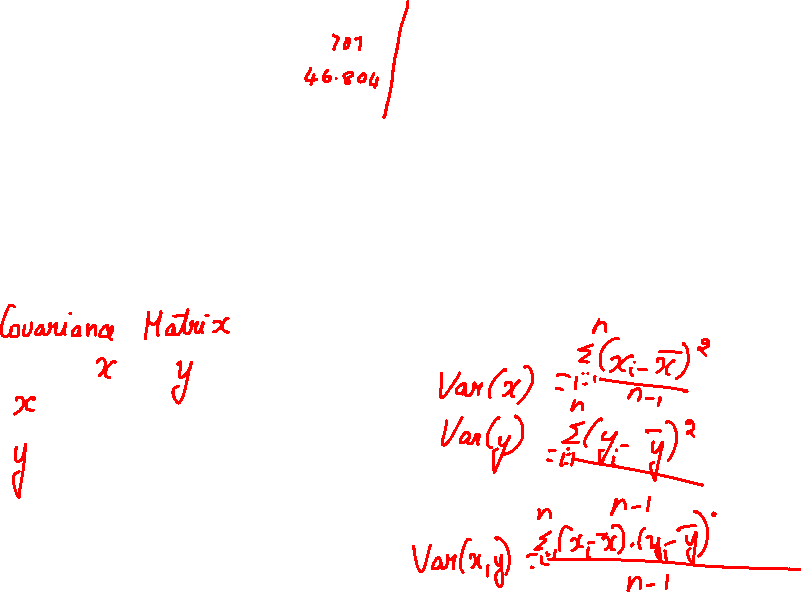 707
46.804
Covariance Matrix
x y
x
y
Var(x) = Σ_{i=1}^{n} (x_i - x̄)² / n-1
Var(y) = Σ_{i=1}^{n} (y_i - ȳ)² / n-1
Var(x,y) = Σ_{i=1}^{n} (x_i - x̄).(y_i - ȳ) / n-1